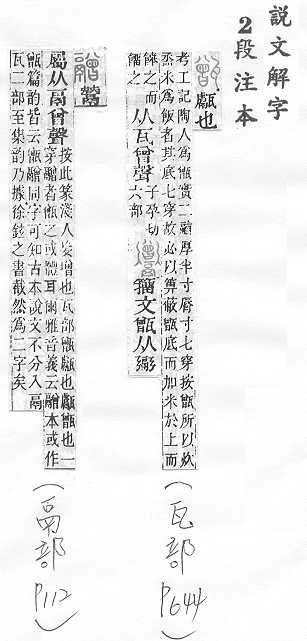 說文解字
2段注本
甑 甗也
考工記陶人為甑實二鬴厚半寸脣寸七穿按甑所以炊
烝米為飯者其底七穿故必以箄蔽甑底而加米於上而
餴之而
餾之
从瓦曾聲
子孕切
六部
籒文甑从䰜
(瓦部 P644)
䰝 鬵
屬从鬲曾聲
按此篆淺人妄增也瓦部甑甗也甗甑也一
穿䰝者甑之或體耳爾雅音義云䰝本或作
甑篇韵皆云甑䰝同字可知古本說文不分入鬲
瓦二部至集韵乃據徐鉉之書截然為二字矣
(鬲部 P112)